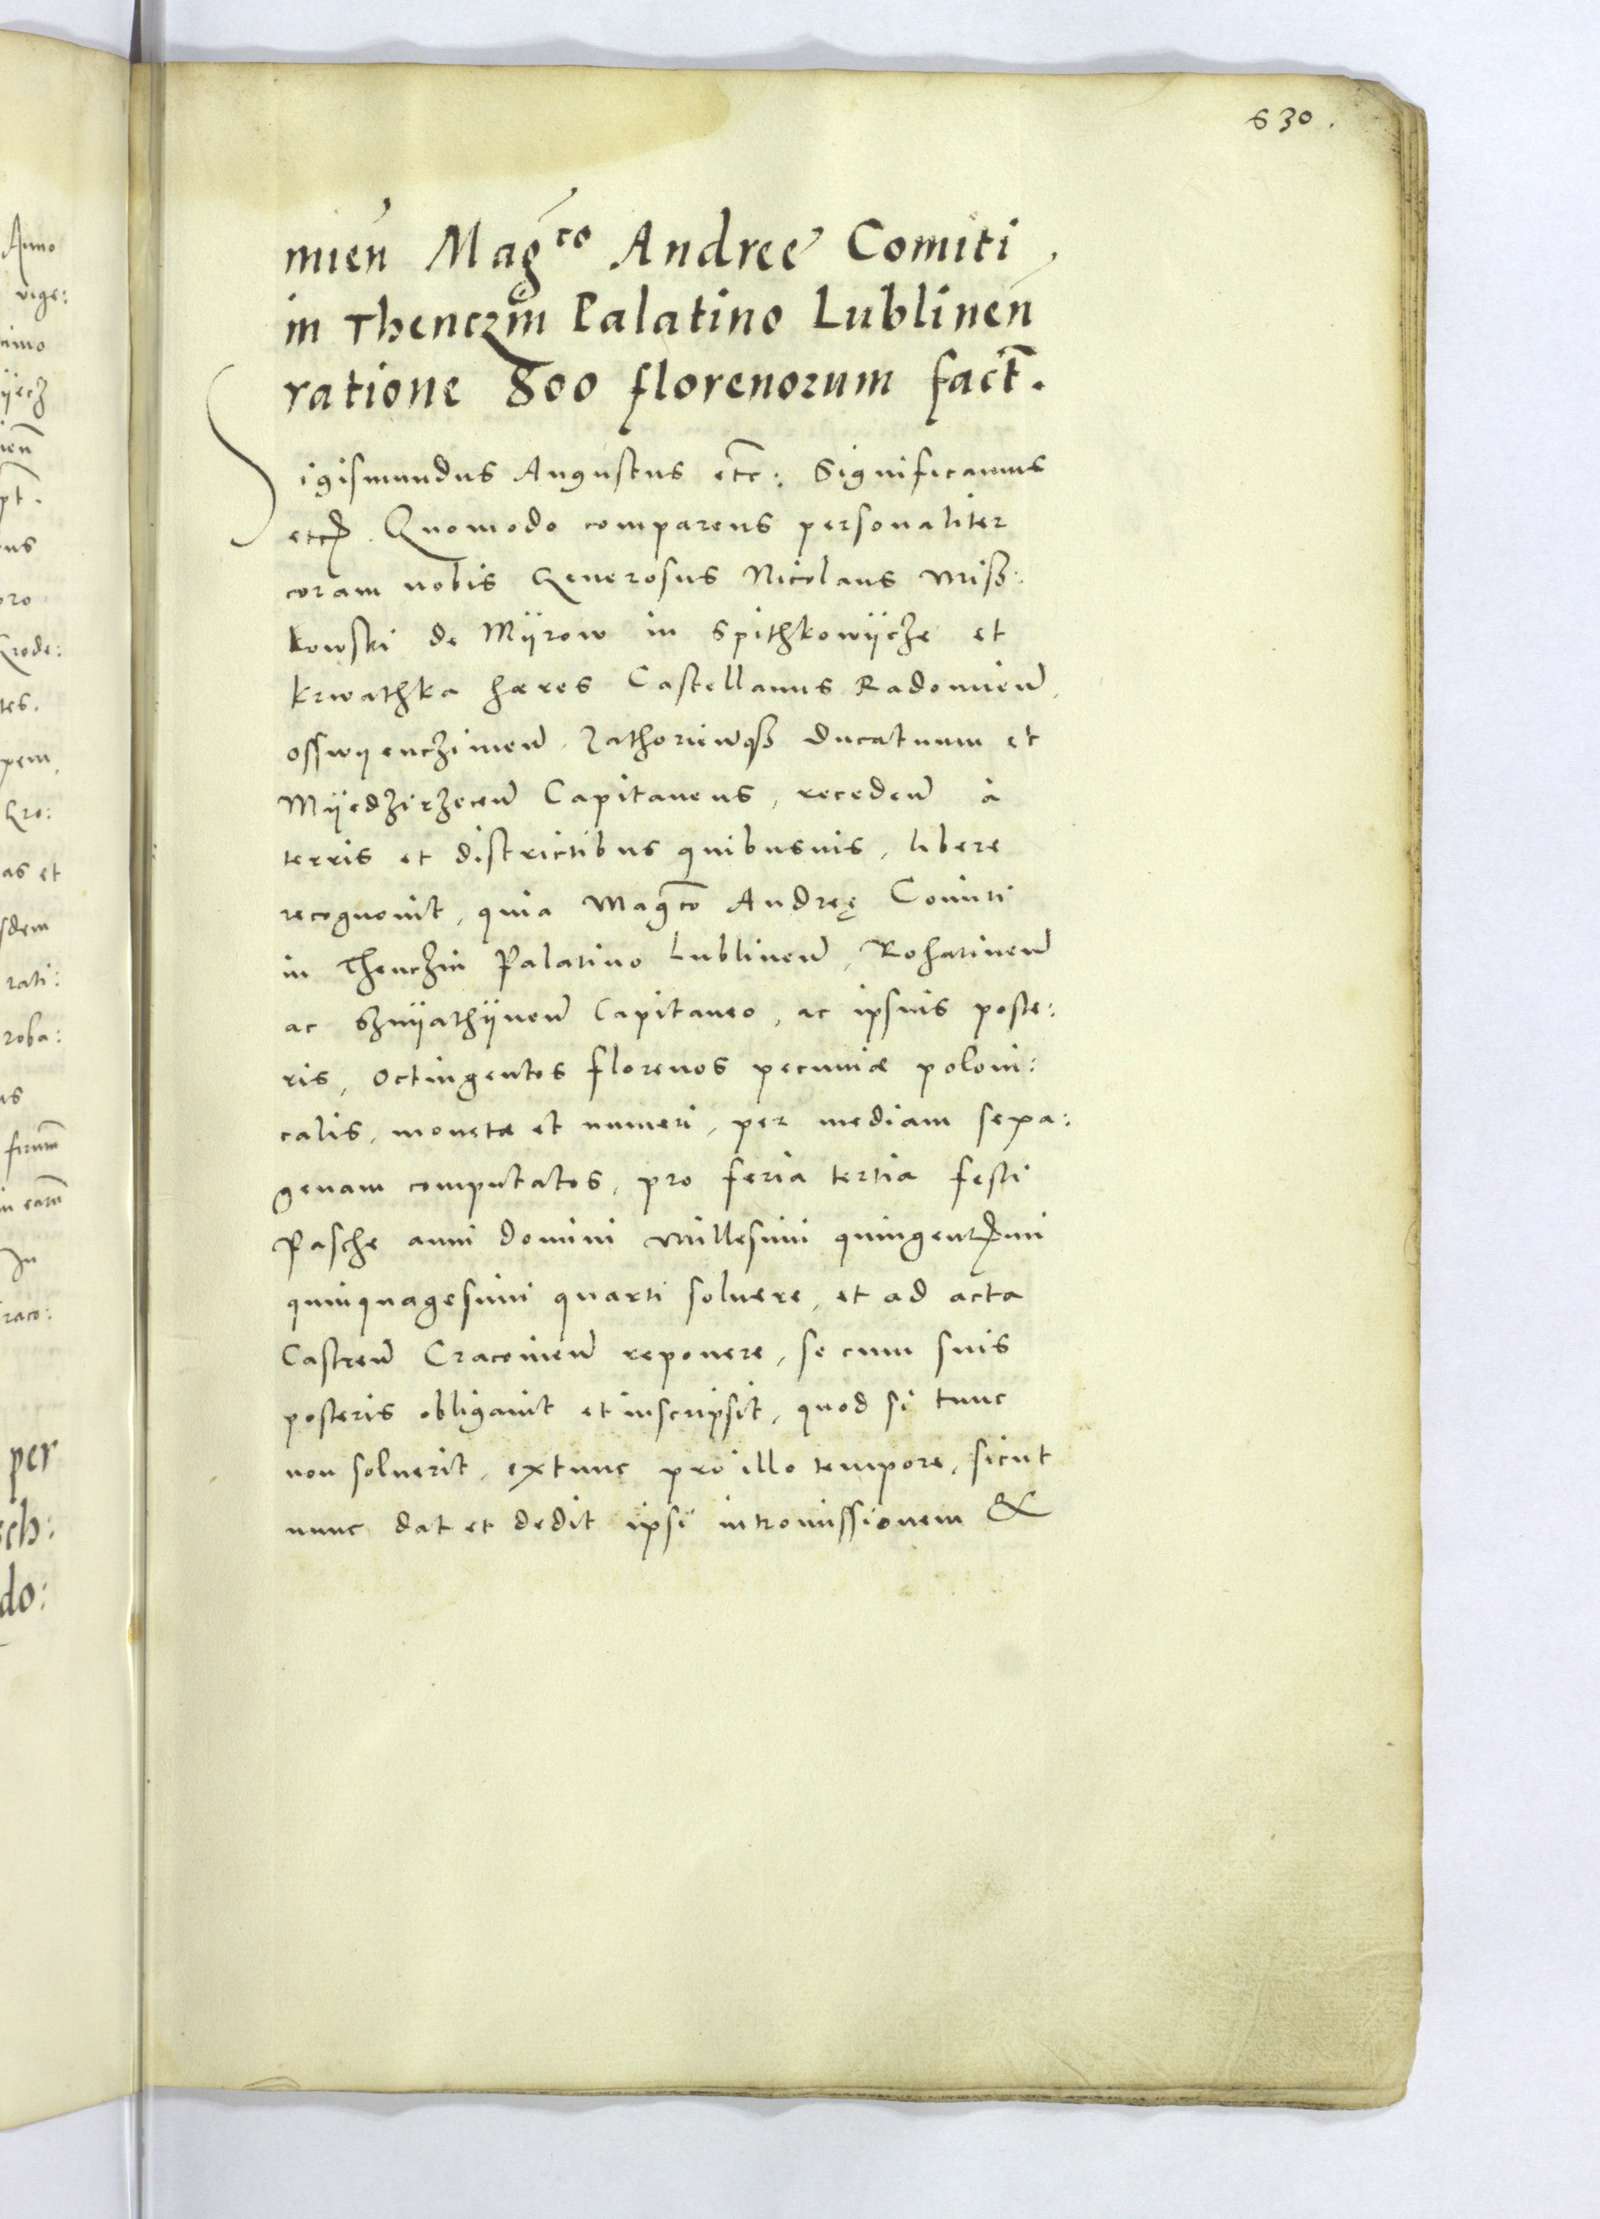 630.
mień Mag͠co Andree Comiti
in Thenczin Palatino Lublineń
ratione 800 florenorum fact̄.
Sigismundus Augustus etc̄: Significamus
etc. Quomodo comparens personaliter
coram nobis Generosus Nicolaus Misz:
kowski de Myrow in Spithkowÿcze et
krwathka hæres Castellanus Radomień,
osswyencʒimeń, Zathorienqz ducatuum et
Mÿedzirzeceń Capitaneus, recedeń à
terris et districtibus quibusuis, libere
recognouit, quia Mag͠co Andreę Comiti
in Thenczin Palatino Lublineń, Rohatineń
ac Sznÿathÿneń Capitaneo, ac ipsius poste:
ris, Octingentos florenos pecuniæ poloni:
calis, monetæ et numeri, per mediam sexa:
genam computatos, pro feria tertia festi
Pasche anni Domini Millesimi quingentesimi
quinquagesimi quarti soluere, et ad acta
Castreń Cracouień reponere, se cum suis
posteris obligauit et inscripsit, quod si tunc
non soluerit, extunc pro illo tempore, sicut
nunc dat et dedit ipsi intromissionem &
Anno
vige:
rode:
tes.
pem,
as et
sdem
rati:
roba:
In
raco:
per
sch:
do: